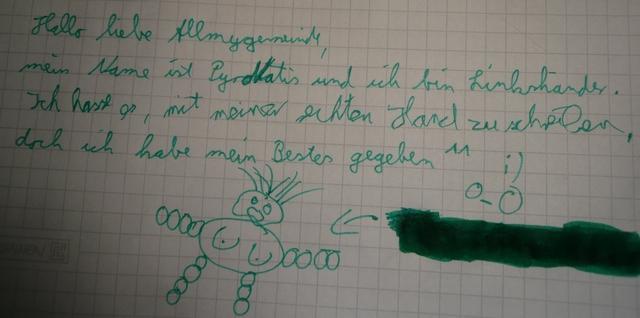 Hallo liebe Allmygemeinde,
mein Name ist Pyrokatis und ich bin Linkshänder.
Ich hasse es, mit meiner rechten Hand zu schreiben,
doch ich habe mein Bestes gegeben ^^
;)
O_O